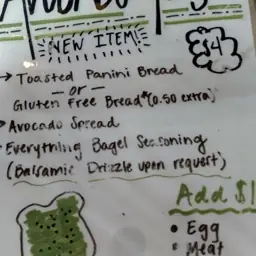 NEW ITEM
$4
→ Toasted Panini Bread
- or -
Gluten Free Bread*(0.50 extra)
• Avocado Spread
• Everything Bagel Seasoning
(Balsamic Drizzle upon request)
Add $1
• Egg
• Meat